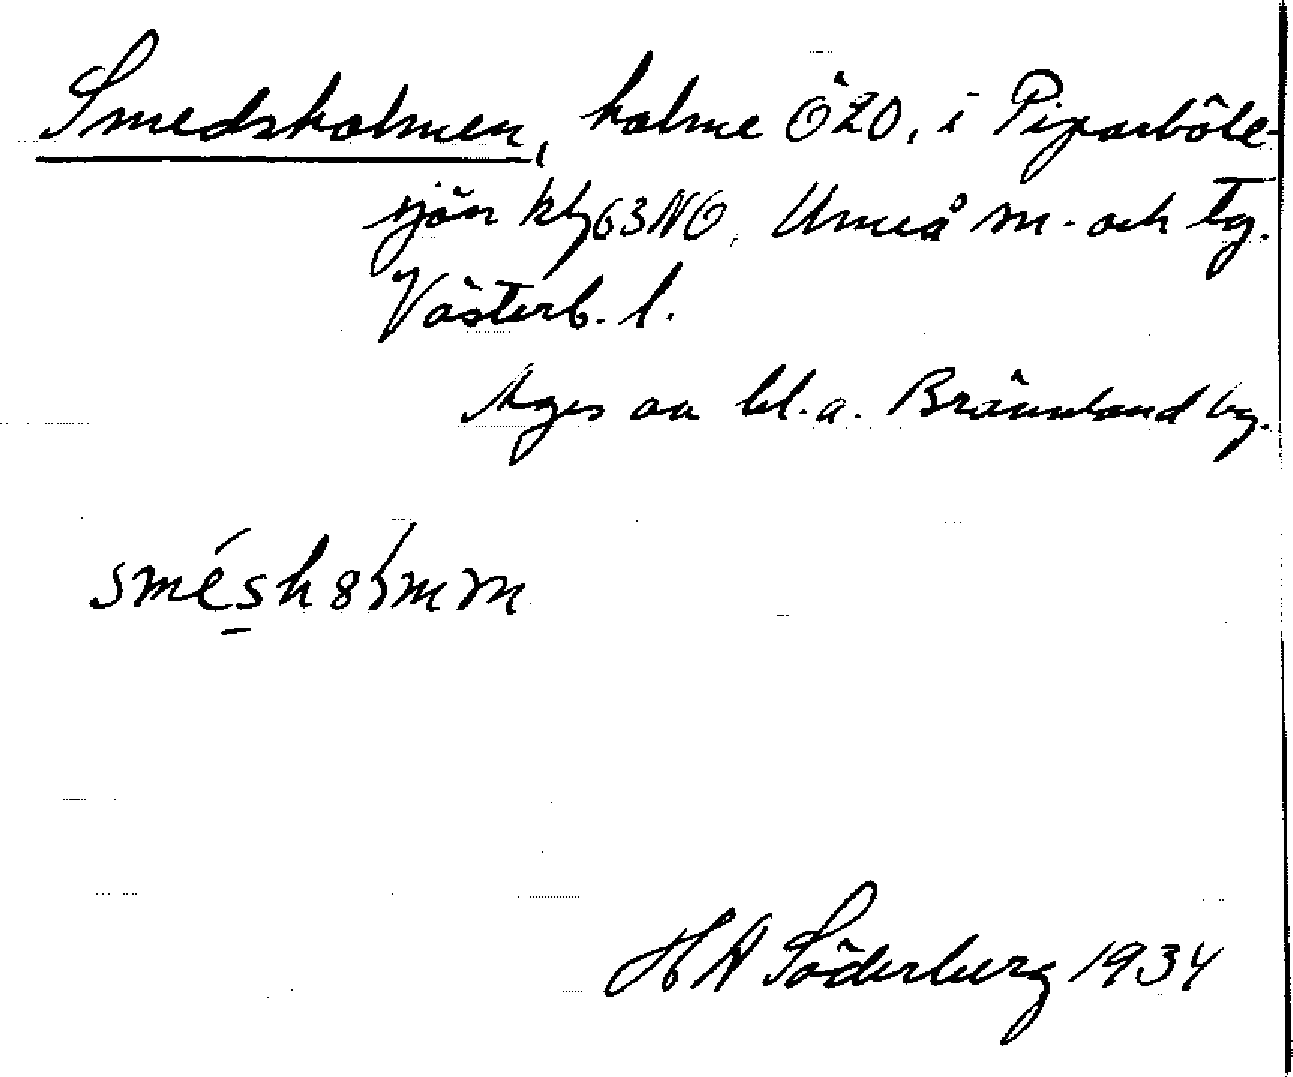 Smedsholmen, holme Ö20, i Piparböle-
sjön kbl 63NO, Umeå m- och tg.
Västerb. l.
Äges av bl.a. Brännland by.
smésh8ɫmm
H A Söderberg 1934